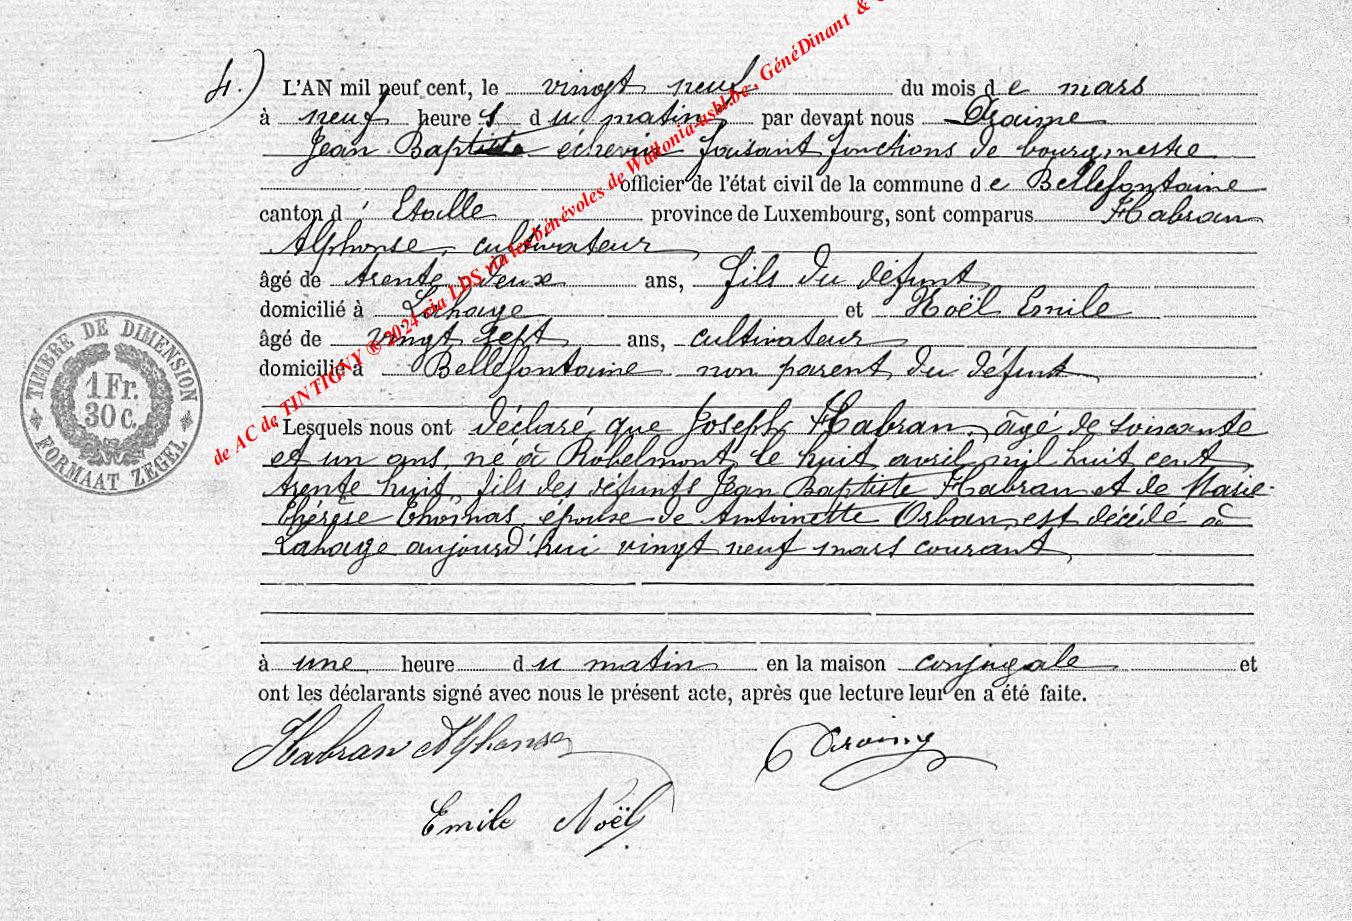 4.)
L'AN mil neuf cent, le vingt neuf du mois de mars
à neuf heures du matin par devant nous
Jean Baptiste échevin faisant fonctions de bourgmestre
officier de l'état civil de la commune de Bellefontaine
canton d'Etalle province de Luxembourg, sont comparus Habran
Alphonse, cultivateur
âgé de trente deux ans, fils du défunt
domicilié à Lahage et Noël Emile
âgé de vingt sept ans, cultivateur
domicilié à Bellefontaine non parent du défunt
Lesquels nous ont déclaré que Joseph Habran, âgé de soixante
et un ans, né à Robelmont le huit avril mil huit cent
trente huit, fils des défunts Jean Baptiste Habran et de Marie-
Thérèse Thomas, épouse de Antoinette Orban, est décédé à
Lahage aujourd'hui vingt neuf mars courant
à une heure du matin en la maison conjugale et
ont les déclarants signé avec nous le présent acte, après que lecture leur en a été faite.
Habran Alphonse
Emile Noël
TIMBRE DE DIMENSION
1 Fr.
30 c.
FORMAAT ZEGEL
de AC de TINTIGNY ® 2024 via LDS via les bénévoles de Wallonia-asbl.be, GénéDinant &